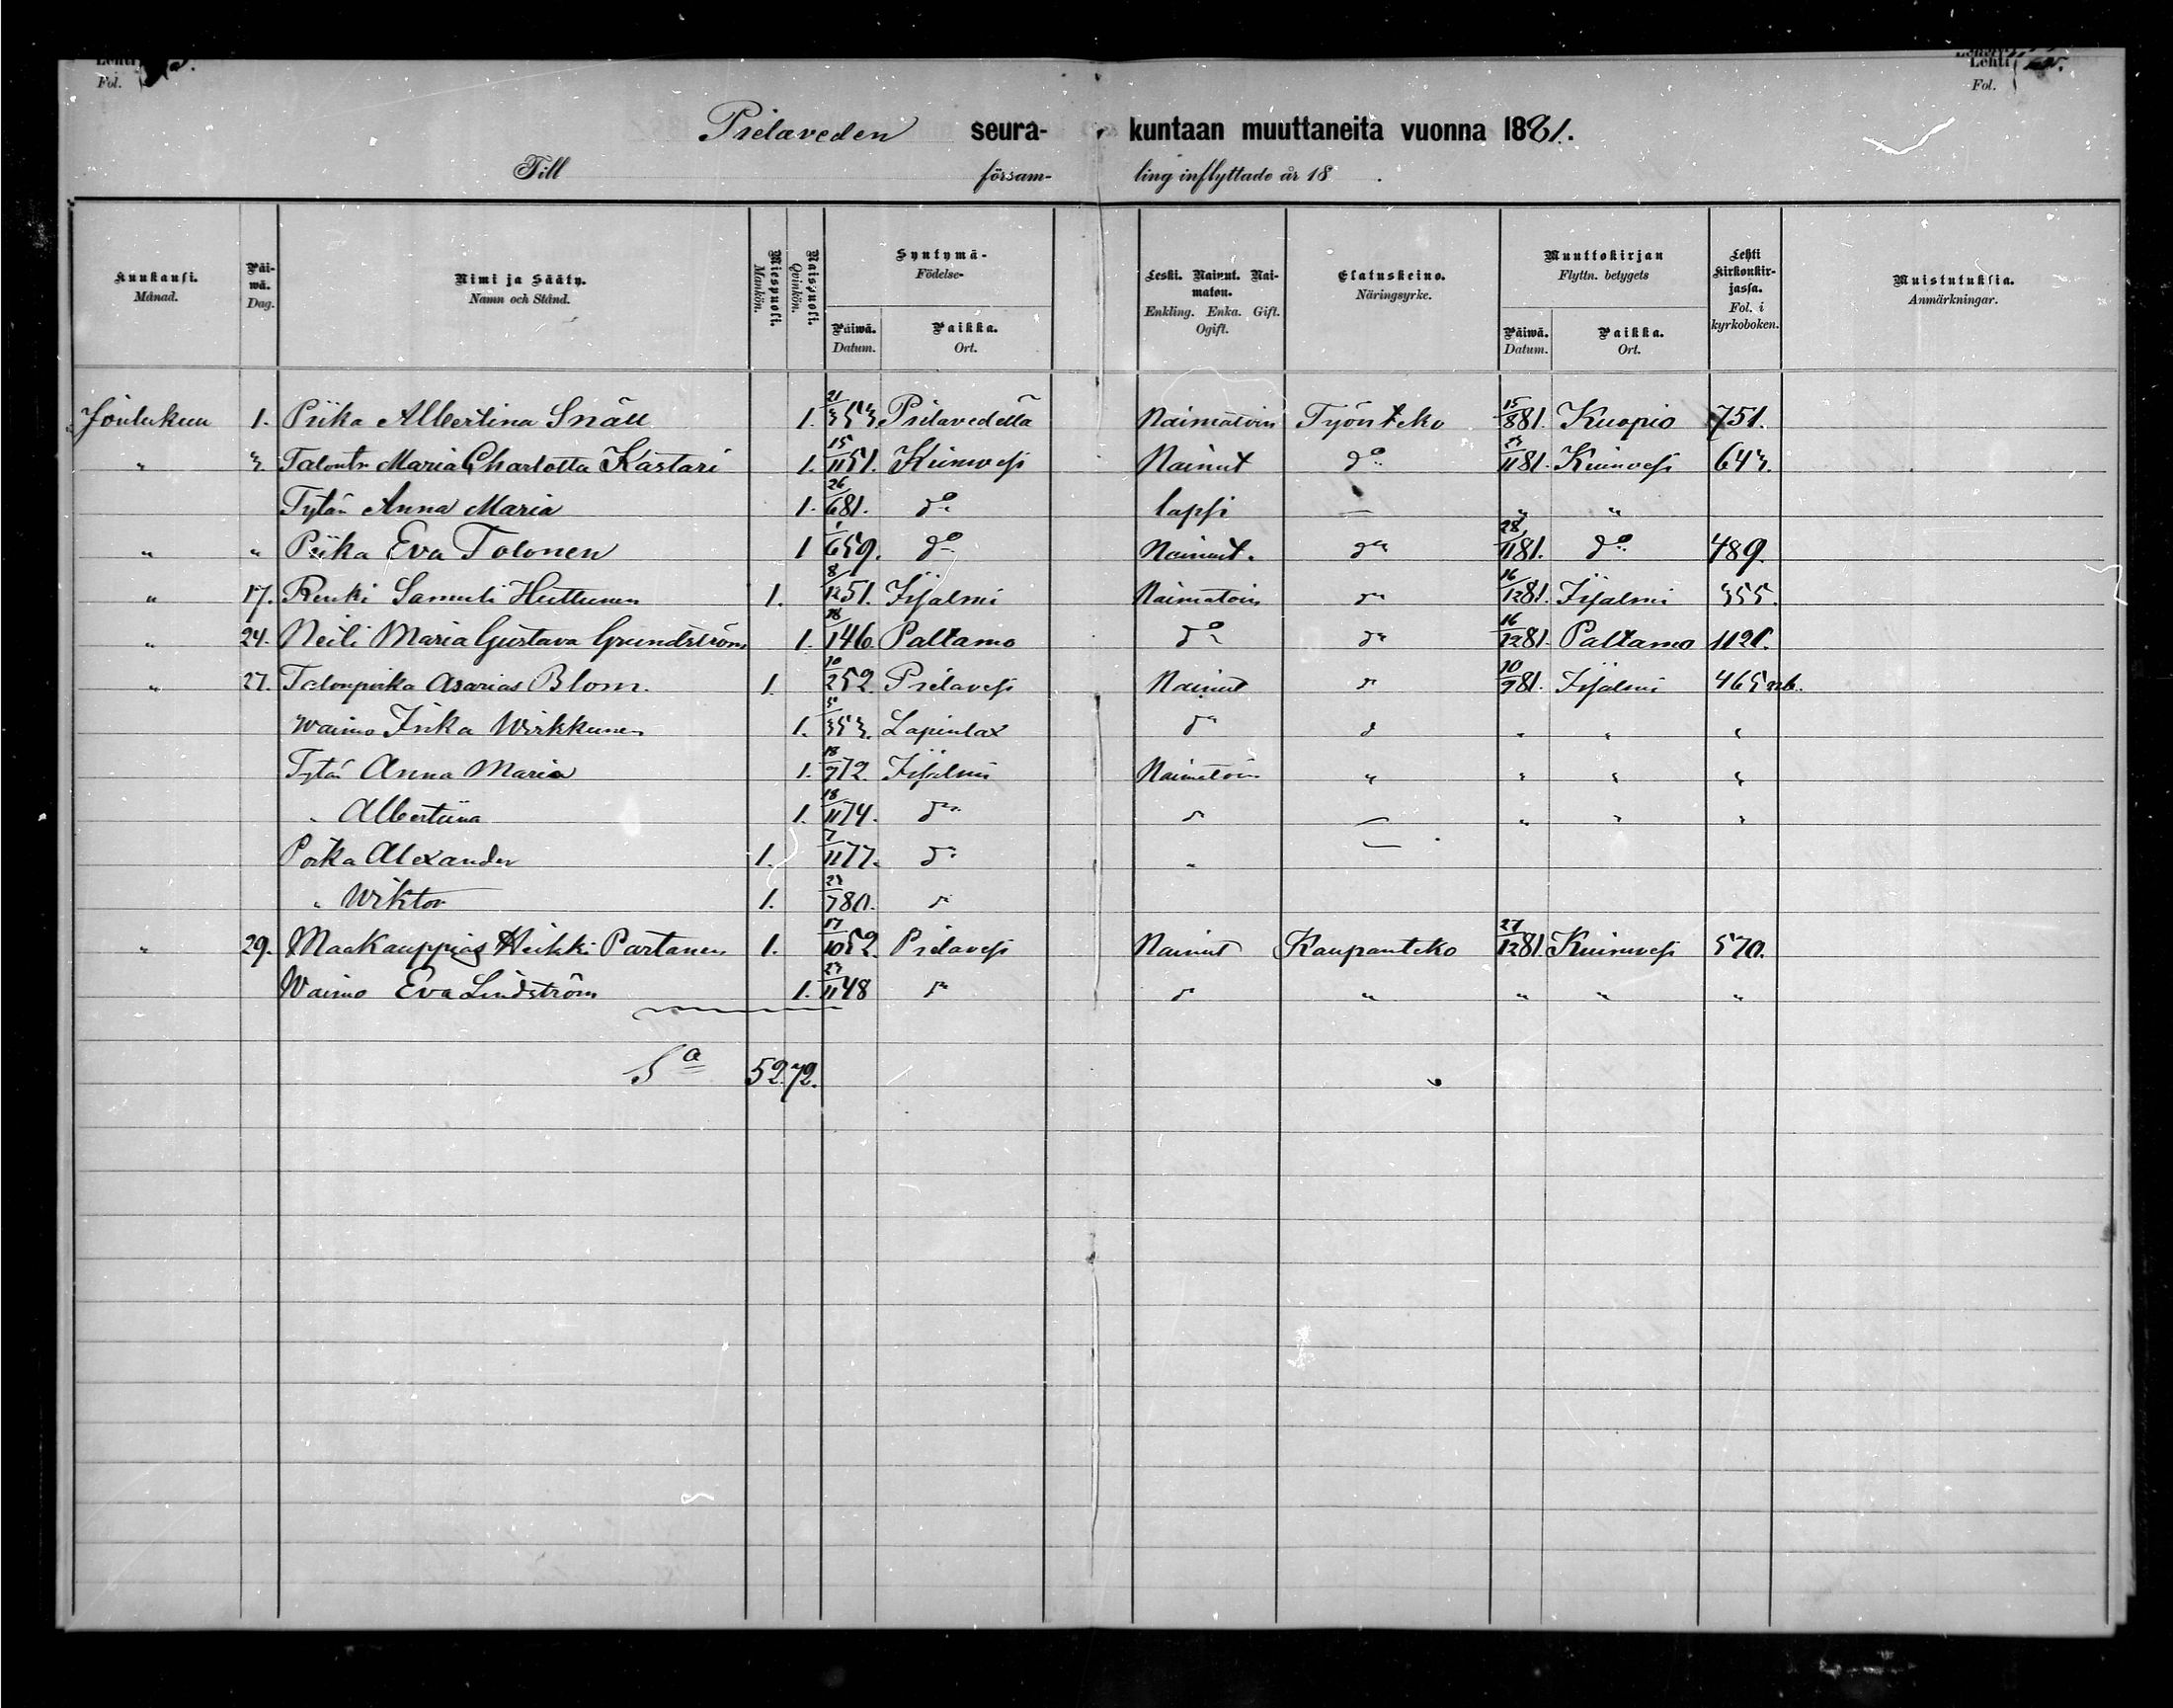 Lehti
Fol.
Lehti
Fol.
Pielaveden seura- kuntaan muuttaneita vuonna 1881.
Till församling inflyttade år 18 .
Kuukausi. Månad. | Päiwä. Dag. | Nimi ja Sääty. Namn och Stånd. | Miespuoli. Mankön. | Naispuoli. Qvinkön. | Syntymä- Födelse- Päiwä. Datum. | Paikka. Ort. | Leski. Nainut. Naimaton. Enkling. Enka. Gift. Ogift. | Elatuskeino. Näringsyrke. | Muuttokirjan Flyttn. betygets Päiwä. Datum. | Paikka. Ort. | Lehti Kirkonkirjassa. Fol. i kyrkoboken. | Muistutuksia. Anmärkningar.
Joulukuu 1. Piika Albertina Snäll 1. 21/3 53. Pielavedellä Naimatoin Työnteko 15/8 81. Kuopio 751.
" 3 Talontr Maria Charlotta Kastari 1. 15/11 51. Kiuruvesi Nainut do 23/11 81. Kiuruvesi 643.
Tytär Anna Maria 1. 26/6 81. do lapsi — " "
" " Piika Eva Tolonen 1 1/6 59. do Nainut. do 28/11 81. do 489.
" 17. Renki Samuli Huttunen 1. 8/12 51. Iisalmi Naimatoin do 16/12 81. Iisalmi 355.
" 24. Neiti Maria Gustava Grundström 1. 18/1 46. Paltamo do do 16/12 81. Paltamo 1121.
" 27. Talonpoika Asarias Blom. 1. 10/2 52. Pielavesi Nainut do 10/9 81. Iisalmi 465 nb.
Waimo Irika Wirkkunen 1. 5/3 53. Lapinlax do do " " "
Tytär Anna Maria 1. 18/9 72. Iisalmi Naimatoin " " " "
" Albertiina 1. 18/11 74. do do — " " "
Poika Alexander 1. 7/11 77. do " —
" Wiktor 1. 23/7 80. do
" 29. Maakauppias Heikki Partanen 1. 17/10 52. Pielavesi Nainut Kaupanteko 27/12 81. Kiuruvesi 570.
Waimo Eva Lindström 1. 23/11 48 do do " " " "
Sa 52. 72.